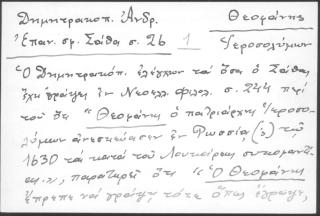 Δημητρακοπ. Ἀνδρ. Θεοφάνης
Ἐπαν. σφ. Σάθα σ. 26 1 Ἱεροσολύμων
Ὁ Δημητρακόπ. ἐλέγχων τὰ ὅσα ὁ Σάθας
ἔχει γράψει ἐν Νεοελλ. φιλολ. σ. 244 περὶ
τοῦ ὅτι "Θεοφάνης ὁ πατριάρχης Ἱεροσο-
λύμων ἀνεσκεύασεν ἐν Ρωσσίᾳ (;) τῷ
1630 τὰ κατὰ τοῦ Λουκάρεως
παρατηρεῖ ὅτι "Ὁ Θεοφάνης
ἔπρεπε νὰ γράψῃ τότε ὅπως ἔγραψε,